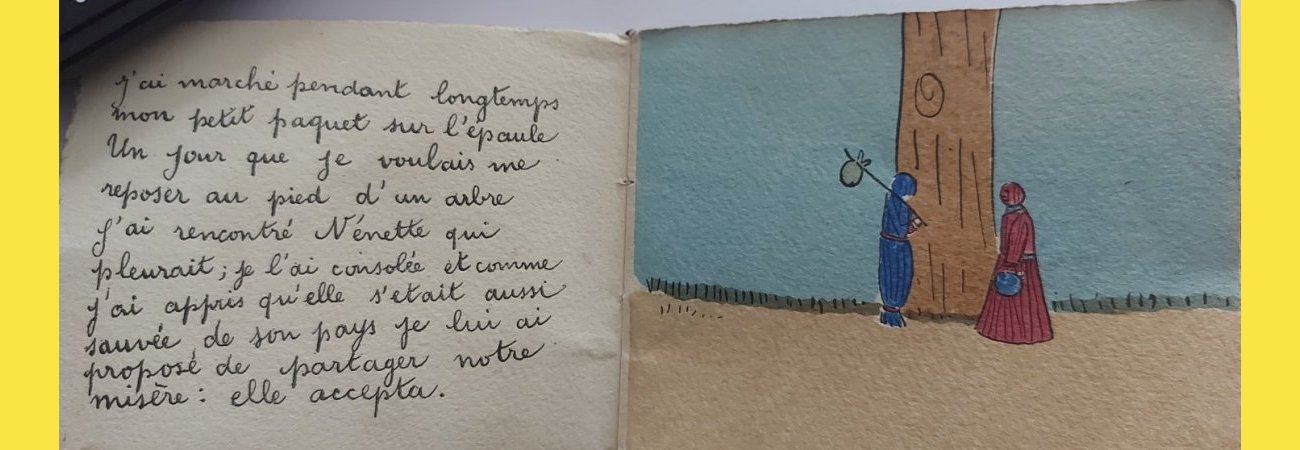 j'ai marché pendant longtemps
mon petit paquet sur l'épaule
Un jour que je voulais me
reposer au pied d'un arbre
j'ai rencontré Nénette qui
pleurait; je l'ai consolée et comme
j'ai appris qu'elle s'etait aussi
sauvée de son pays je lui ai
proposé de partager notre
misère: elle accepta.